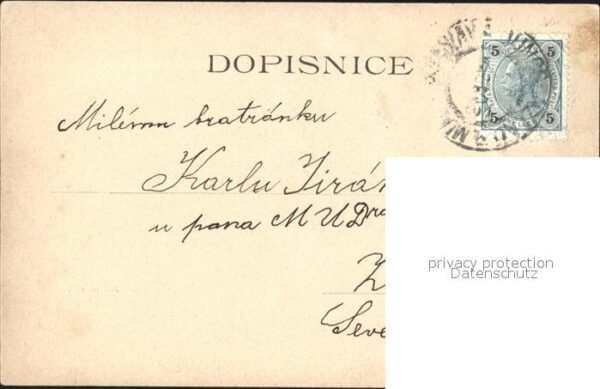 DOPISNICE
5 5
5 5
Milému bratránku
Karlu Jirán
u pana MUDra
Z
Seve
privacy protection
Datenschutz